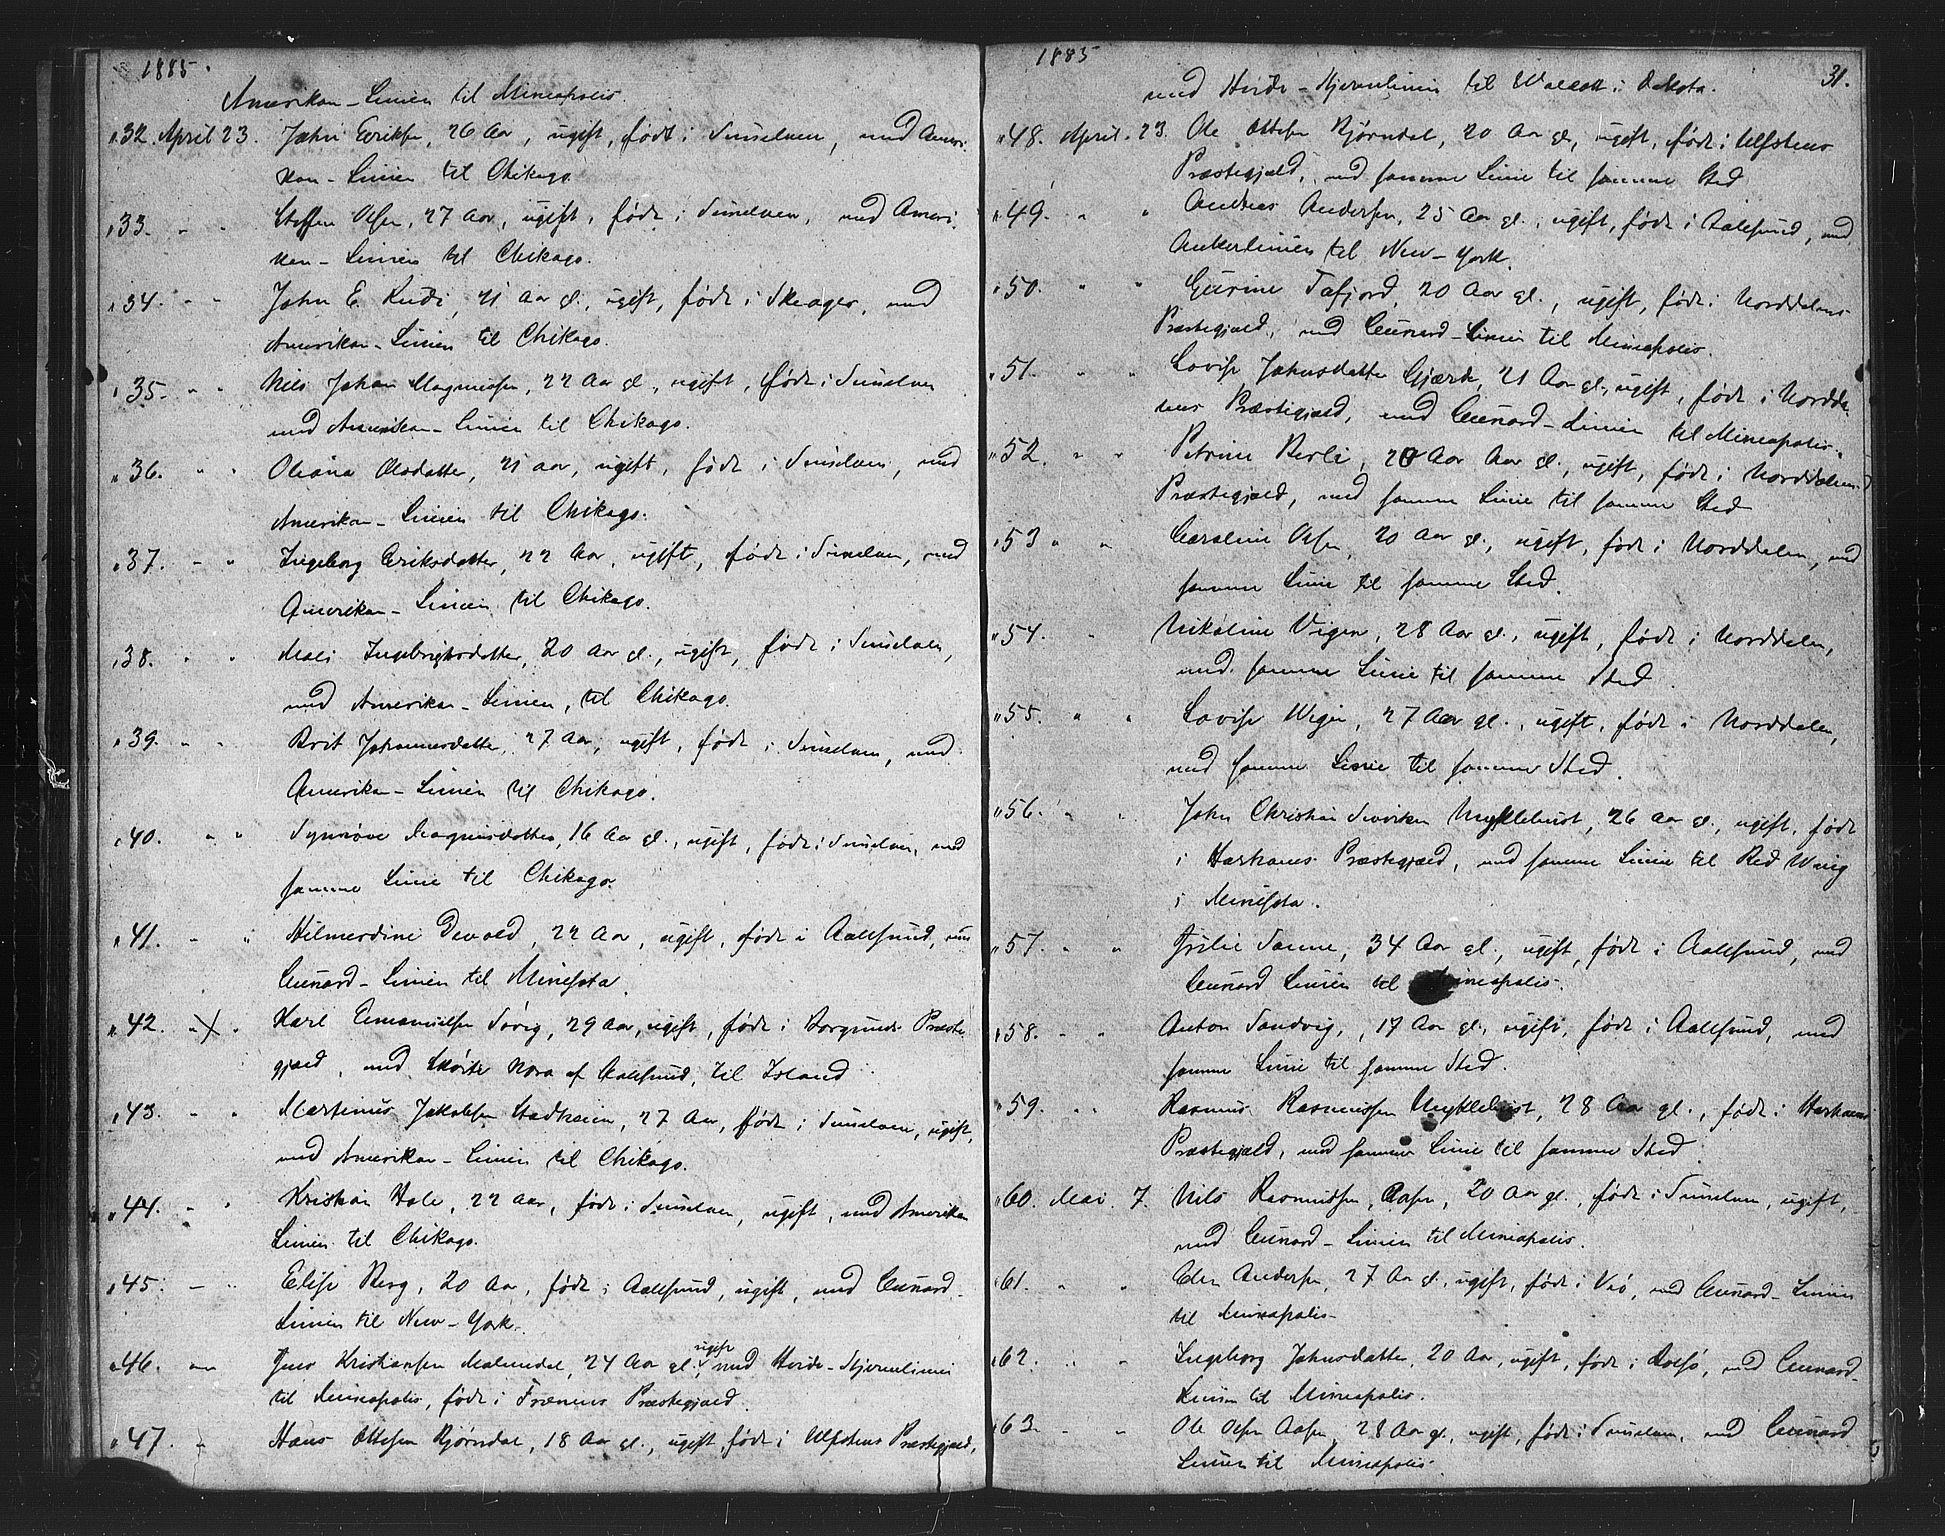 1885.
Amerikan-Linien til Mineapolis.
" 32. April 23. John Eriksen, 26 Aar, ugift, født i Sunelven, med Ameri-
kan-Linien til Chikago.
" 33. " " Steffen Olsen, 27 Aar, ugift, født i Sunelven, med Ameri-
kan-Linien til Chikago.
" 34. " " John E., 21 Aar gl., ugift, født i, med
Amerikan-Linien til Chikago.
" 35. " " Nils Johan Magnussen, 22 Aar gl., ugift, født i Sunelven
med Amerikan-Linien til Chikago.
" 36. " " Oliana Olsdatter, 21 aar, ugift, født i Sunelven, med
Amerikan-Linien til Chikago.
" 37. " " Ingeborg Eriksdatter, 22 Aar, ugift, født i Sunelven, med
Amerikan-Linien til Chikago.
" 38. " " Mali Ingebrigtsdatter, 20 Aar gl., ugift, født i Sunelven,
med Amerikan-Linien, til Chikago.
" 39. " " Brit Johannesdatter, 27 Aar, ugift, født i Sunelven, med
Amerikan-Linien til Chikago.
" 40. " " Synnøve Magnusdatter, 16 Aar gl., ugift, født i Sunelven, med
samme Linie til Chikago.
" 41. " " Hilmerdine Devold, 22 Aar, ugift, født i Aalesund, med
Cunard-Linien til Minesota.
" 42. " " Karl Emanuelsen Søvig, 29 Aar, ugift, født i Borgunds Præste-
gjæld, med Skøite Nora af Aalesund, til Island
" 43. " " Martinus Jakobsen Stadheim, 27 Aar, født i Sunelven, ugift,
med Amerikan-Linien til Chikago.
" 44. " " Kristian Hole, 22 aar, født i Sunelven, ugift, med Amerikan
Linien til Chikago.
" 45. " " Elise Berg, 20 Aar, født i Aalesund, ugift, med Cunard-
Linien til New-York.
" 46. " Jens Kristiansen Malmedal, 24 Aar gl., ugift, med Hvide-Stjernelinien
til Mineapolis, født i Frænens Præstegjæld.
" 47. " Hans Ottesen Bjørndal, 18 Aar gl., ugift, født i Ulfstens Præstegjæld,
1885
31.
med Hvide-Stjernelinien til Walcott i Dakota.
" 48. April. 23. Ole Ottesen Bjørndal, 20 Aar gl., ugift, født i Ulfstens
Præstegjæld, med samme Linie til samme Sted
" 49. " " Andreas Andersen, 25 Aar gl., ugift, født i Aalesund, med
Ankerlinien til New-York.
" 50. " " Gurine Tafjord, 20 Aar gl., ugift, født i Norddalens
Præstegjæld, med Cunard-Linien til Mineapolis.
" 51. " " Lovise Johnsdatter Gjærde, 21 Aar gl., ugift, født i Nordda-
lens Præstegjæld, med Cunard-Linien til Mineapolis.
" 52. " " Petrine Berli, 20 Aar Aar gl., ugift, født i Norddalens
Præstegjæld, med samme Linie til samme Sted
" 53 " " Caroline Olsen, 20 Aar gl., ugift, født i Norddalen, med
samme Linie til samme Sted.
" 54. " Nikoline Vigen, 28 Aar gl., ugift, født i Norddalen,
med samme Linie til samme Sted.
" 55. " " Lovise Vigen, 27 Aar gl., ugift, født i Norddalen,
med samme Linie til samme Sted.
" 56. " " John Christian Myklebust, 26 aar gl., ugift, født
i Harhams Præstegjæld, med samme Linie til Red Wing
i Minesota.
" 57. " " Julie Sanne, 34 Aar gl., ugift, født i Aalesund, med
Cunard Linien til Mineapolis.
" 58. " " Anton Sandvig, 17 Aar gl., ugift, født i Aalesund, med
samme Linie til samme Sted.
" 59. " " Rasmus Rasmussen Myklebust, 28 Aar gl., født i Harhams
Præstegjæld, med samme Linie til samme Sted.
" 60. Mai. 7. Nils Rasmussen Aasen, 20 Aar gl., født i Sunelven, ugift,
med Cunard-Linien til Mineapolis.
" 61. " " Andersen, 27 Aar gl., ugift, født i Veø, med Cunard-Linien
til Mineapolis-
" 62. " " Ingeborg Johnsdatter, 20 Aar, ugift, født i Bolsø, med Cunard-
Linien til Mineapolis.
" 63. " " Ole Olsen Aasen, 28 Aar gl., ugift, født i Sunelven, med Cunard
Linien til Mineapolis.